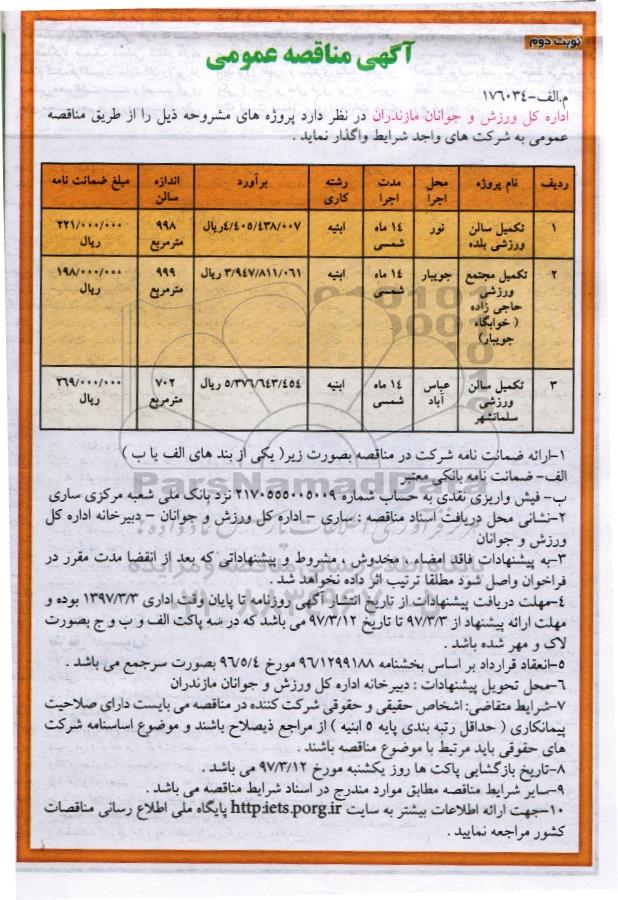 نوبت دوم
آگهی مناقصه عمومی
م.الف-۱۷۶۰۳۴
اداره کل ورزش و جوانان مازندران در نظر دارد پروژه های مشروحه ذیل را از طریق مناقصه
عمومی به شرکت های واجد شرایط واگذار نماید .
ردیف نام پروژه محل اجرا مدت اجرا رشته کاری برآورد اندازه سالن مبلغ ضمانت نامه
۱ تکمیل سالن ورزشی بلده نور ۱۴ ماه شمسی ابنیه ۴/۴۰۵/۴۳۸/۰۰۷ریال ۹۹۸ مترمربع ۲۲۱/۰۰۰/۰۰۰ ریال
۲ تکمیل مجتمع ورزشی حاجی زاده ( خوابگاه جویبار) جویبار ۱۴ ماه شمسی ابنیه ۳/۹۴۷/۸۱۱/۰۶۱ ریال ۹۹۹ مترمربع ۱۹۸/۰۰۰/۰۰۰ ریال
۳ تکمیل سالن ورزشی سلمانشهر عباس آباد ۱۴ ماه شمسی ابنیه ۵/۳۷۶/۶۴۳/۴۵۴ ریال ۷۰۲ مترمربع ۲۶۹/۰۰۰/۰۰۰ ریال
۱-ارائه ضمانت نامه شرکت در مناقصه بصورت زیر( یکی از بند های الف یا ب )
الف- ضمانت نامه بانکی معتبر
ب- فیش واریزی نقدی به حساب شماره ۲۱۷۰۵۵۵۰۰۵۰۰۹ نزد بانک ملی شعبه مرکزی ساری
۲-نشانی محل دریافت اسناد مناقصه : ساری – اداره کل ورزش و جوانان – دبیرخانه اداره کل
ورزش و جوانان
۳-به پیشنهادات فاقد امضاء ، مخدوش ، مشروط و پیشنهاداتی که بعد از انقضا مدت مقرر در
فراخوان واصل شود مطلقا ترتیب اثر داده نخواهد شد .
۴-مهلت دریافت پیشنهادات از تاریخ انتشار آگهی روزنامه تا پایان وقت اداری ۱۳۹۷/۳/۳ بوده و
مهلت ارائه پیشنهاد از ۹۷/۳/۳ تا تاریخ ۹۷/۳/۱۲ می باشد که در سه پاکت الف و ب و ج بصورت
لاک و مهر شده باشد .
۵-انعقاد قرارداد بر اساس بخشنامه ۹۶/۱۲۹۹۱۸۸ مورخ ۹۶/۵/۴ بصورت سرجمع می باشد .
۶-محل تحویل پیشنهادات : دبیرخانه اداره کل ورزش و جوانان مازندران
۷-شرایط متقاضی: اشخاص حقیقی و حقوقی شرکت کننده در مناقصه می بایست دارای صلاحیت
پیمانکاری ( حداقل رتبه بندی پایه ۵ ابنیه ) از مراجع ذیصلاح باشند و موضوع اساسنامه شرکت
های حقوقی باید مرتبط با موضوع مناقصه باشند .
۸-تاریخ بازگشایی پاکت ها روز یکشنبه مورخ ۹۷/۳/۱۲ می باشد .
۹-سایر شرایط مناقصه مطابق موارد مندرج در اسناد شرایط مناقصه می باشد .
۱۰-جهت ارائه اطلاعات بیشتر به سایت http:iets.porg.ir پایگاه ملی اطلاع رسانی مناقصات
کشور مراجعه نمایید .
ParsNamadData